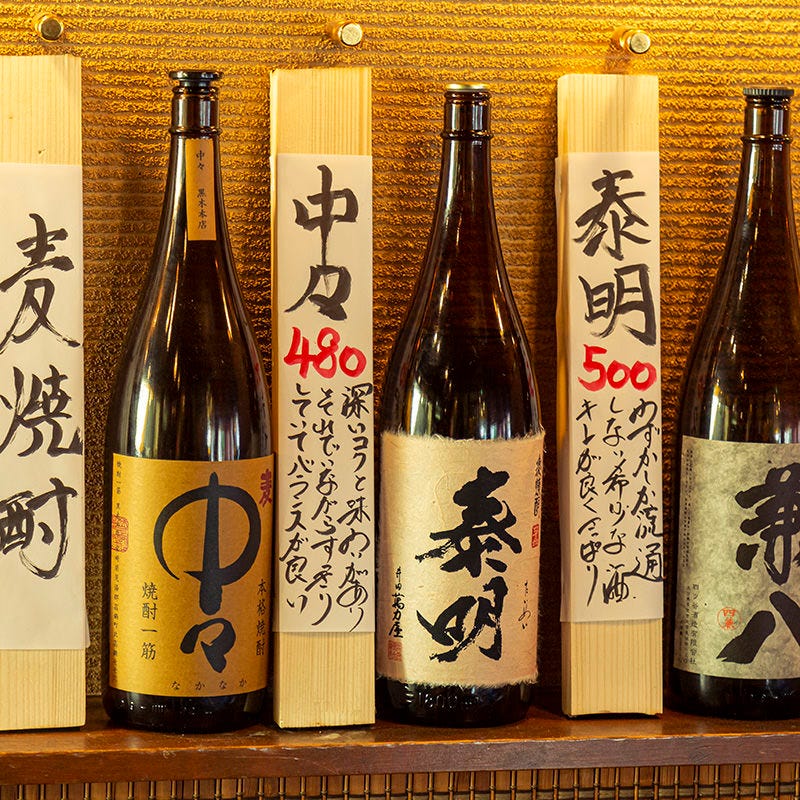 麦焼酎
中々 黒木本店
麦
中々
焼酎一筋
本格焼酎
なかなか
中々
480
深いコクと味わいがあり
それでいながらすっきり
していてバランスが良い
泰明
井田萬力屋
たいめい
泰明
500
わずかしか流通
しない希少な酒
キレが良く
兼八
四ツ谷酒造有限会社
四ツ